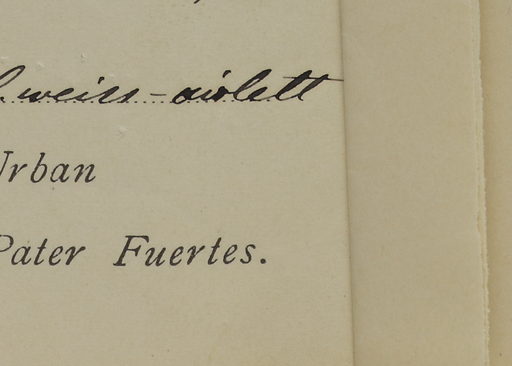 weiss-violett
Urban
Pater Fuertes.